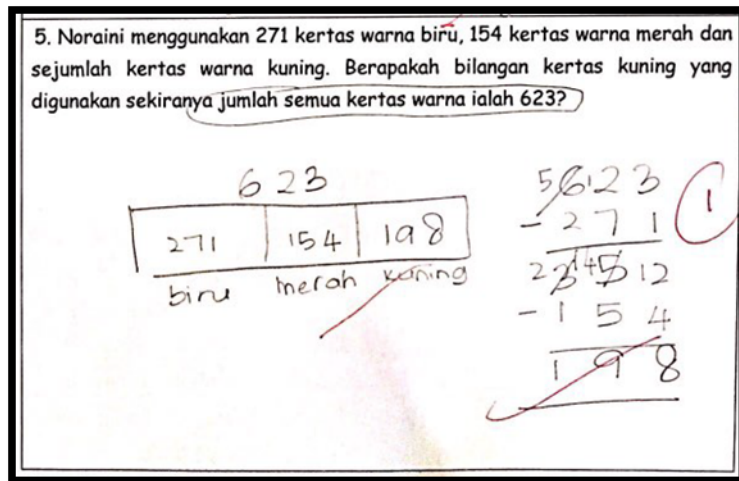 5. Noraini menggunakan 271 kertas warna biru, 154 kertas warna merah dan
sejumlah kertas warna kuning. Berapakah bilangan kertas kuning yang
digunakan sekiranya jumlah semua kertas warna ialah 623?
623
271 154 198
biru merah kuning
5 6 12 3
- 2 7 1
2 3 14 5 12
- 1 5 4
1 9 8
1